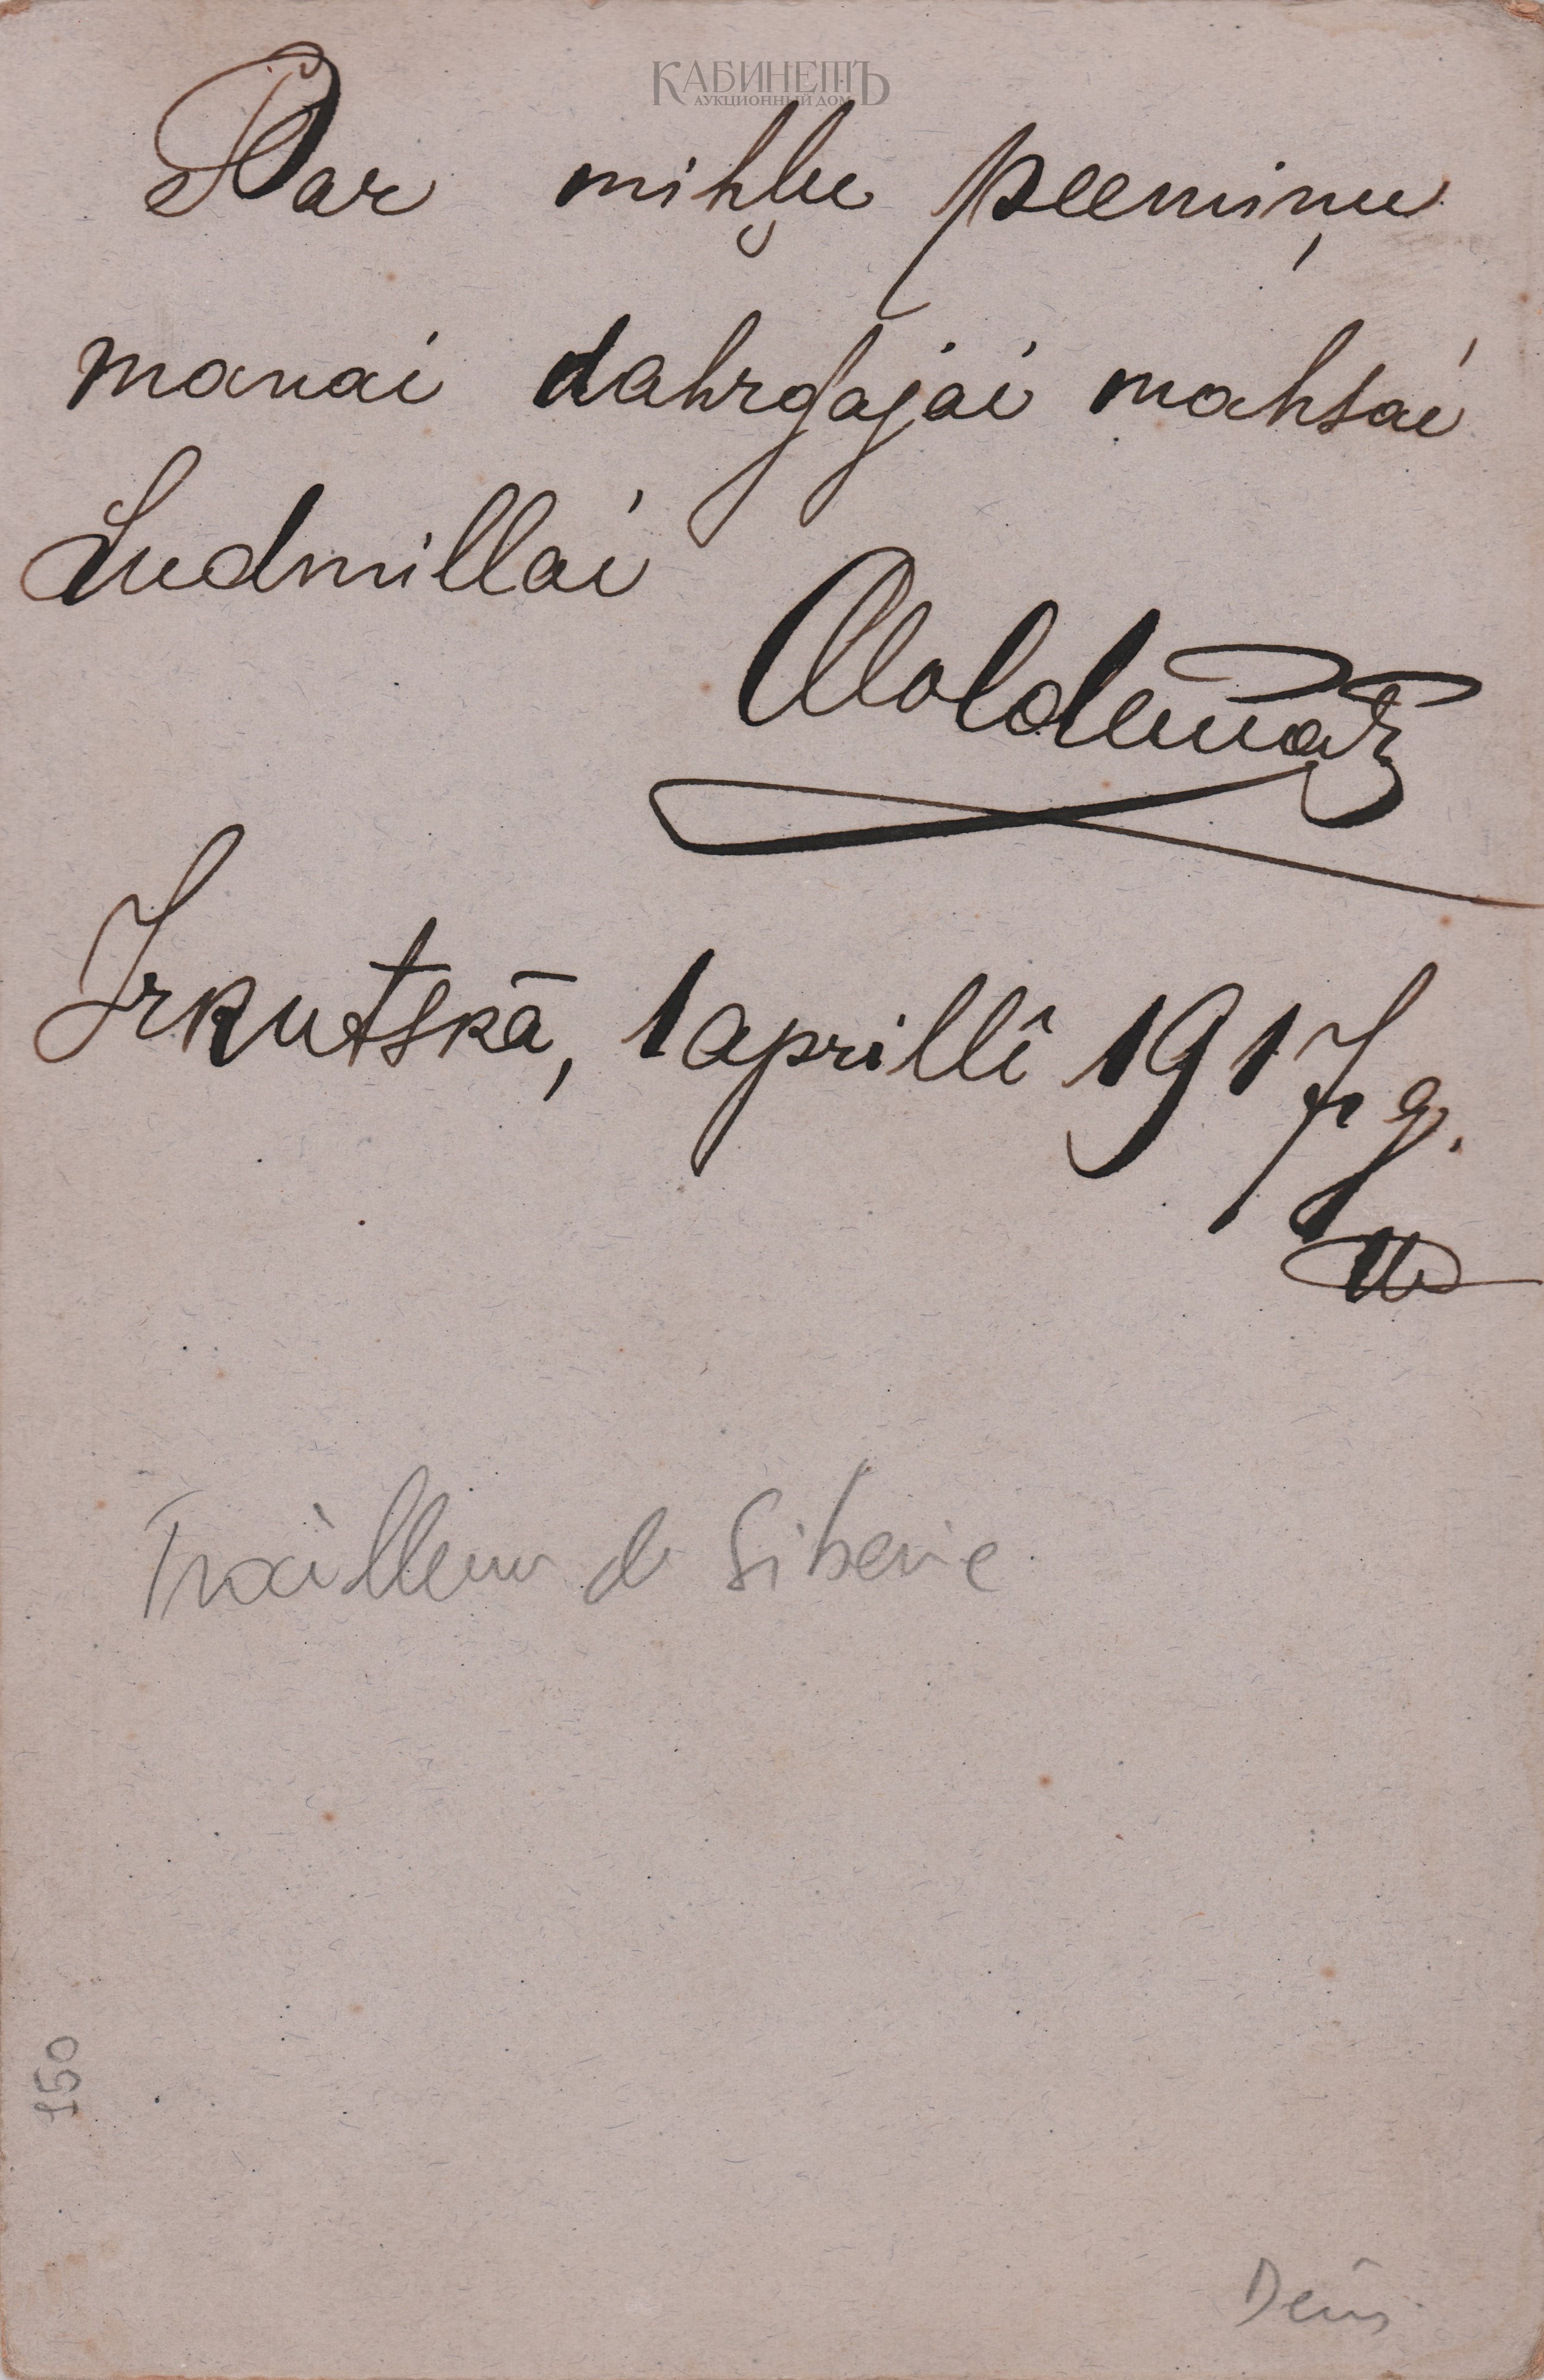 КАБИНЕТЪ
АУКЦИОННЫЙ ДОМ
Par mihļu peemiņu
manai dahrgajai mahsai
Ludmillai
Woldemar
Irkutskā, 1 aprillî 1917 g.
Tirailleur de Siberie
150